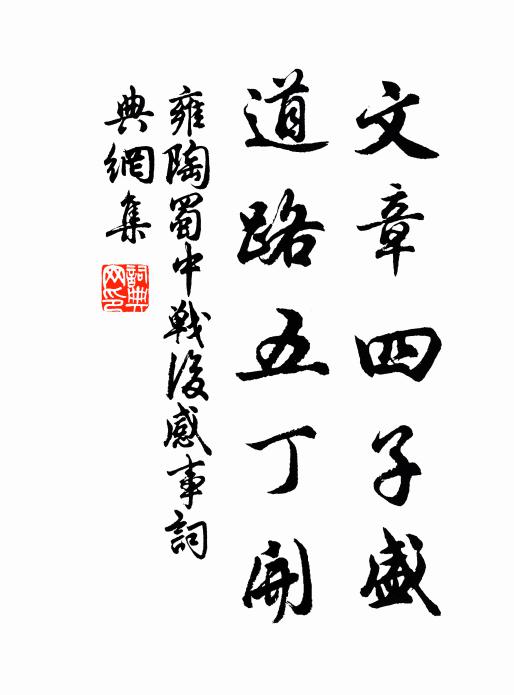 文章四子盛
道路五丁開
雍陶蜀中戰後感事詞
典網集
詞典
网印